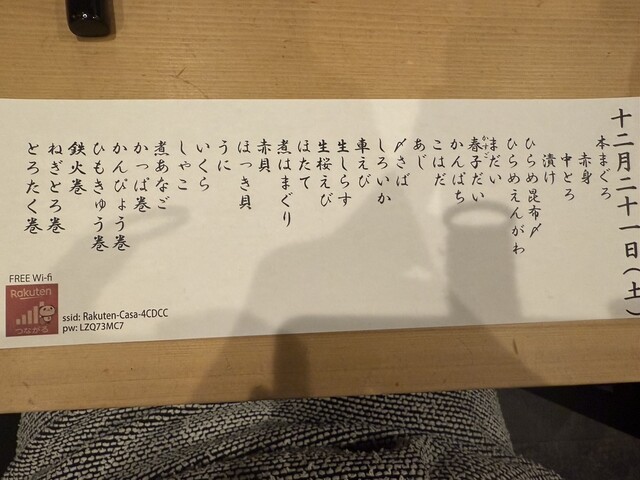 十二月二十一日(土)
本まぐろ
赤身
中とろ
漬け
ひらめ昆布〆
ひらめえんがわ
まだい
春子だい
かすご
かんぱち
こはだ
あじ
〆さば
しろいか
車えび
生しらす
生桜えび
ほたて
煮はまぐり
赤貝
ほっき貝
うに
いくら
しゃこ
煮あなご
かっぱ巻
かんぴょう巻
ひもきゅう巻
鉄火巻
ねぎとろ巻
とろたく巻
FREE Wi-fi
Rakuten
つながる
ssid: Rakuten-Casa-4CDCC
pw: LZQ73MC7